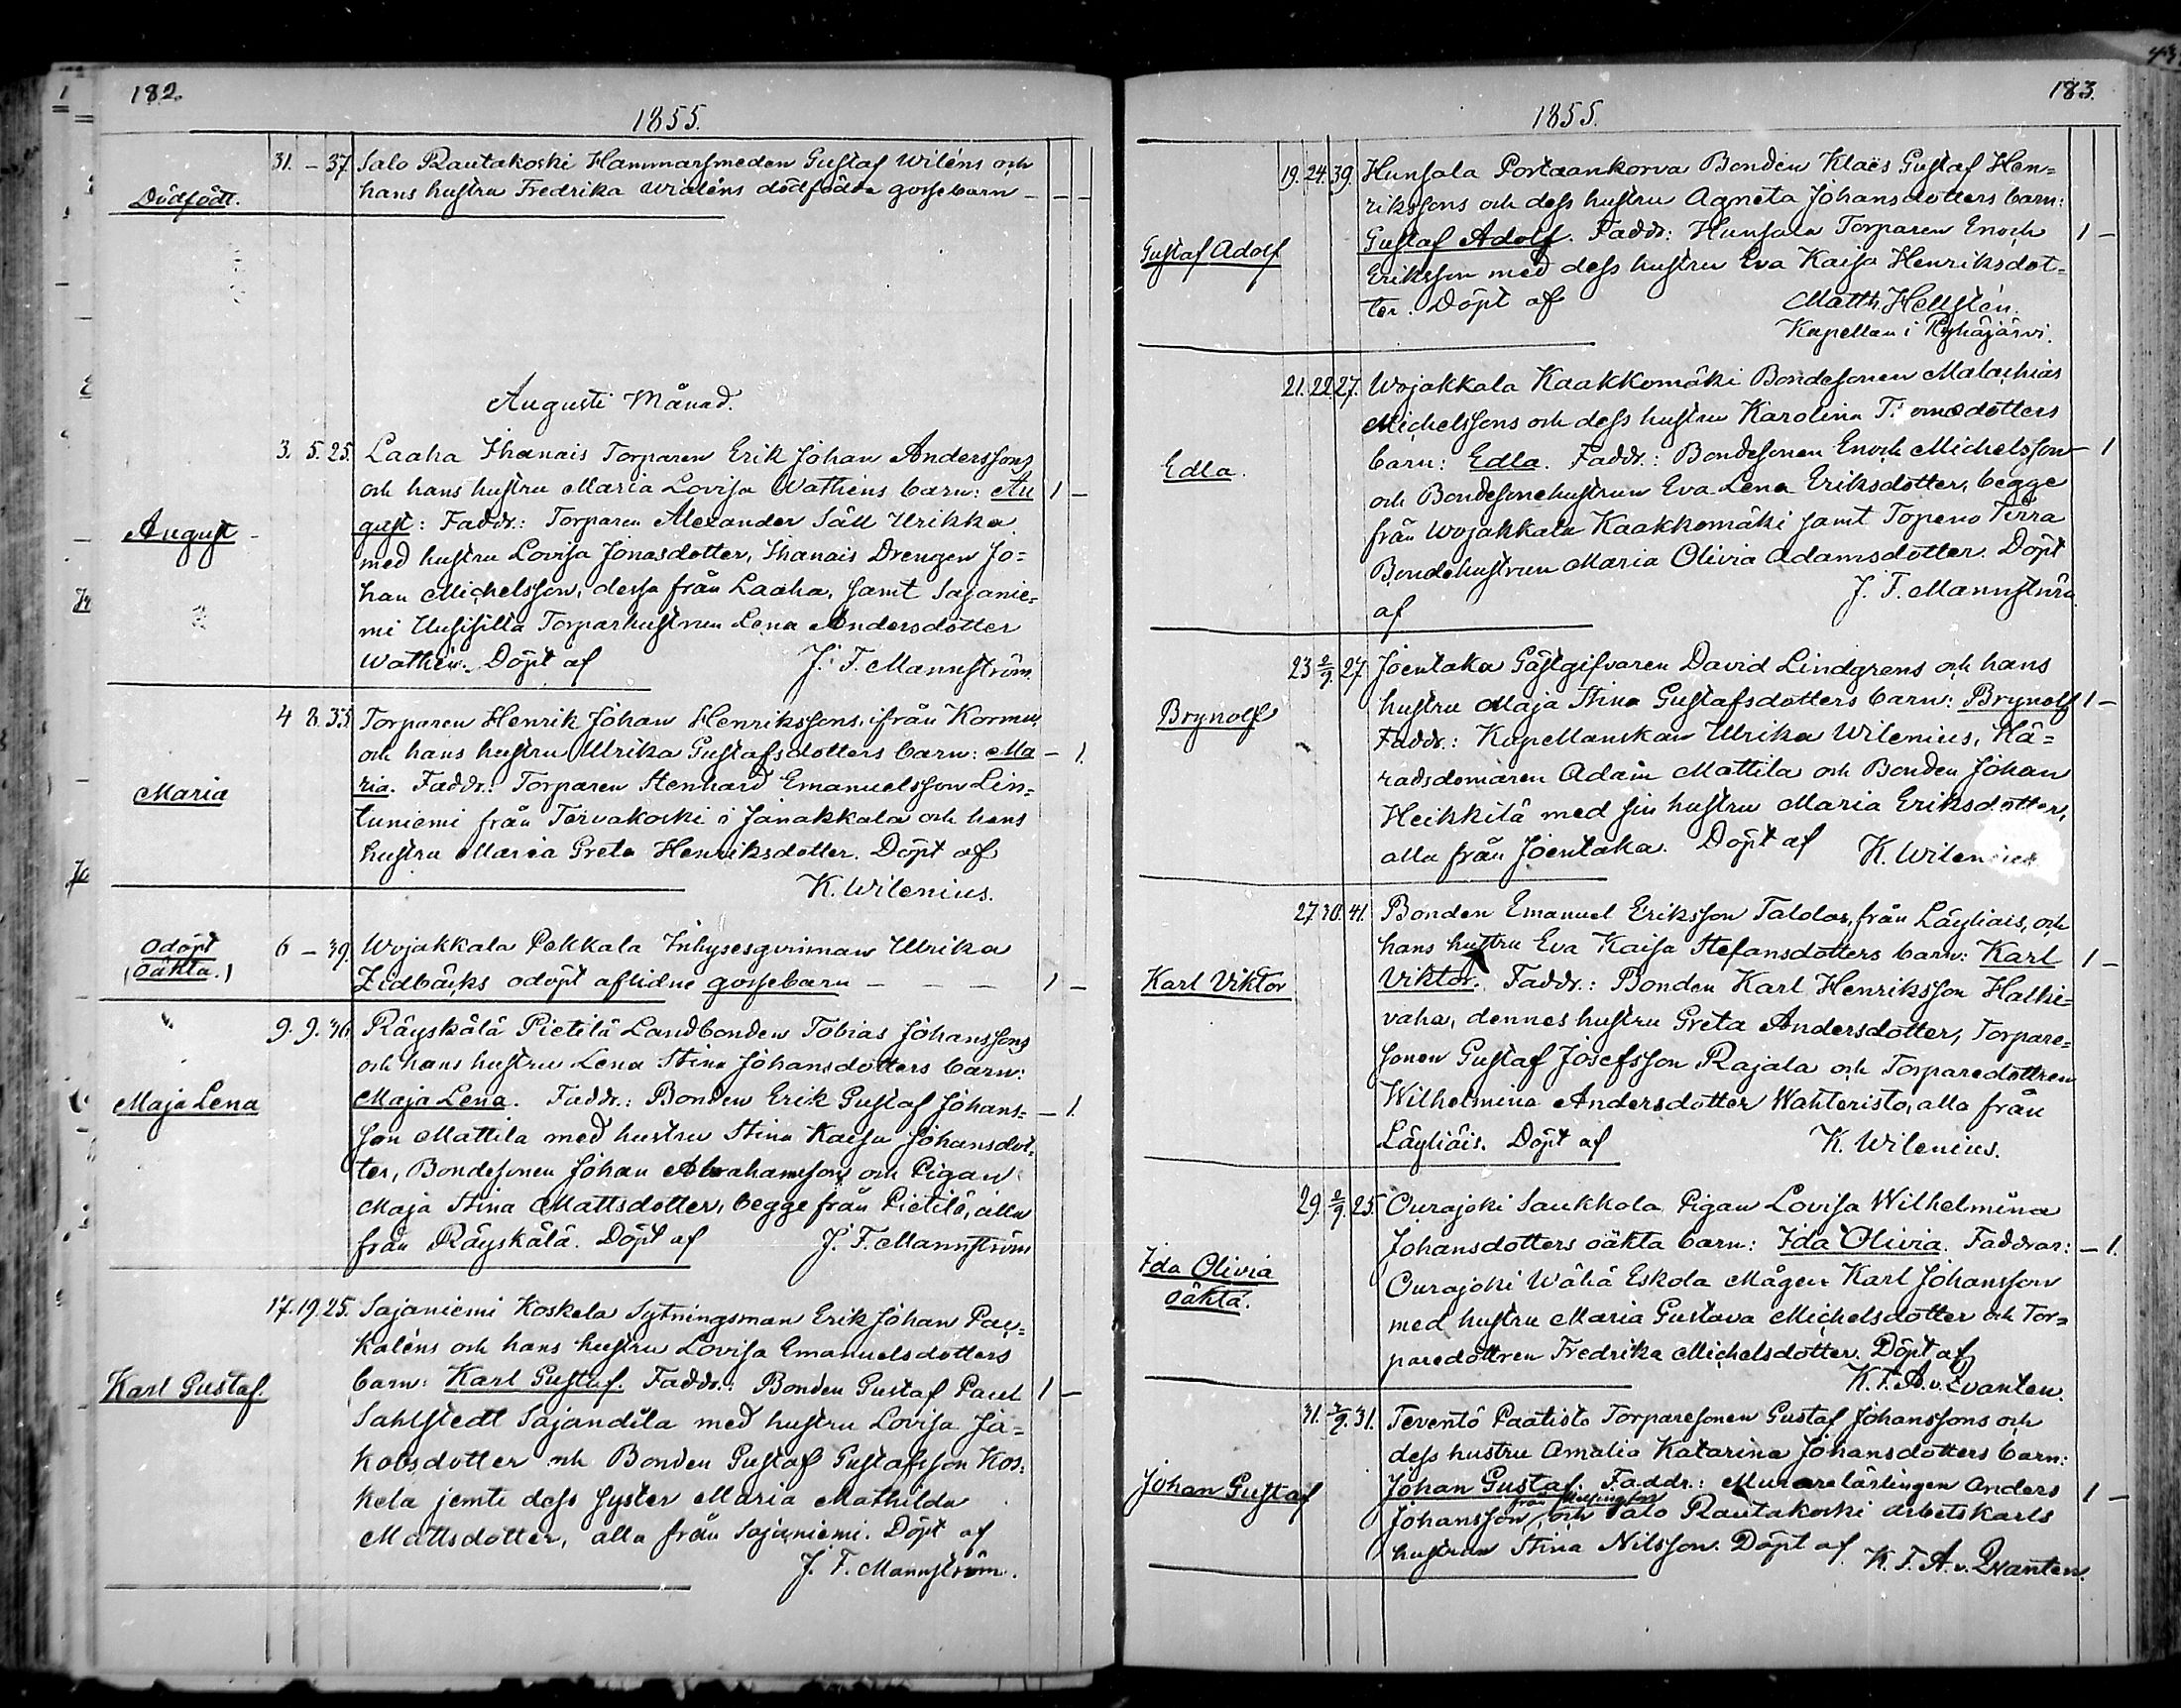 182.
1855.
31. – 37. Salo Rautakoski Hammarsmeden Gustaf Wiléns och
Dödfödt. hans hustru Fredrika Wiléns dödfödde gossebarn – – –
Augusti Månad.
3. 5. 25. Laaha Ihanais Torparen Erik Johan Anderssons
och hans hustru Maria Lovisa Wathéns barn: Au 1 –
August – gust: Faddr.: Torparen Alexander Säll Urikka
med hustru Lovisa Jonasdotter, Ihanais Drengen Jo=
han Michelsson, dessa från Laaha, samt Sajanie=
mi Uusisilla Torparhustrun Lena Andersdotter
Wathén. Döpt af J. F. Mannström.
4 8. 33. Torparen Henrik Johan Henrikssons, ifrån Kormu
och hans hustru Ulrika Gustafsdotters barn: Ma – 1.
Maria ria. Faddr.: Torparen Stenhard Emanuelsson Lin=
tuniemi från Tervakoski i Janakkala och hans
hustru Maria Greta Henriksdotter. Döpt af
K. Wilenius.
Odöpt 6 – 39. Wojakkala Pekkala Inhysesqvinnan Ulrika
(Oäkta.) Lidbäcks odöpt aflidne gossebarn – – – 1 –
9. 9. 36. Räyskälä Pietilä Landbonden Tobias Johanssons
och hans hustru Lena Stina Johansdotters barn:
Maja Lena Maja Lena. Faddr.: Bonden Erik Gustaf Johans= – 1.
son Mattila med hustru Stina Kaisa Johansdot=
ter, Bondesonen Johan Abrahamsson och Pigan
Maja Stina Mattsdotter, begge från Pietilä, alla
från Räyskälä. Döpt af J. F. Mannström
17. 19. 25. Sajaniemi Koskela Sytningsman Erik Johan Pac=
kaléns och hans hustru Lovisa Emanuelsdotters
Karl Gustaf. barn: Karl Gustaf. Faddr.: Bonden Gustaf Paul 1 –
Sahlstedt Sajandila med hustru Lovisa Ja=
kobsdotter och Bonden Gustaf Gustafsson Kos=
kela jemte dess syster Maria Mathilda
Mattsdotter, alla från Sajaniemi. Döpt af
J. F. Mannström.
183.
1855.
19. 24. 39. Hunsala Portaankorva Bonden Klaës Gustaf Hen=
rikssons och dess hustru Agneta Johansdotters barn:
Gustaf Adolf Gustaf Adolf. Faddr: Hunsala Torparen Enoch 1 –
Eriksson med dess hustru Eva Kaisa Henriksdot=
ter. Döpt af Matth. Hellstén.
Kapellan i Pyhäjärvi.
21. 22. 27. Wojakkala Kaakkomäki Bondesonen Malachias
Michelssons och dess hustru Karolina T omasdotters
Edla. barn: Edla. Faddr.: Bondesonen Enoch Michelsson – 1
och Bondesonehustrun Eva Lena Eriksdotter, begge
från Wojakkala Kaakkomäki samt Topeno Tirra
Bondehustrun Maria Olivia Adamsdotter. Döpt
af J. F. Mannström
23 2/9. 27 Joentaka Gästgifvaren David Lindgrens och hans
Brynolf hustru Maja Stina Gustafsdotters barn: Brynolf 1 –
Faddr.: Kapellanskan Ulrika Wilenius, Hä=
radsdomaren Adam Mattila och Bonden Johan
Heikkilä med sin hustru Maria Eriksdotter,
alla från Joentaka. Döpt af K. Wilenius
27 30. 41. Bonden Emanuel Eriksson Talolas, från Läyliais, och
hans hustru Eva Kaisa Stefansdotters barn: Karl 1 –
Karl Viktor Viktor. Faddr.: Bonden Karl Henriksson Halki=
vaha, dennes hustru Greta Andersdotter, Torpare=
sonen Gustaf Josefsson Rajala och Torparedottren
Wilhelmina Andersdotter Wahteristo, alla från
Läyliäis. Döpt af K. Wilenius.
29. 2/9. 25. Ourajoki Saukkola Pigan Lovisa Wilhelmina
Johansdotters oäkta barn: Ida Olivia. Faddrar: – 1.
Ida Olivia Ourajoki Wähä Eskola Mågen Karl Johansson
Oäkta. med hustru Maria Gustava Michelsdotter och Tor=
paredottren Fredrika Michelsdotter. Döpt af
K. F. A. v. Qvanten.
31. /9. 31. Teventö Paatisto Torparesonen Gustaf Johanssons och
dess hustru Amalia Katarina Johansdotters barn:
Johan Gustaf Johan Gustaf. Faddr.: Murarelärlingen Anders 1 –
från Helsingfors
Johansson och Salo Rautakoski Arbetskarls
hustrun Stina Nilsson. Döpt af K. F. A. v. Qvanten.